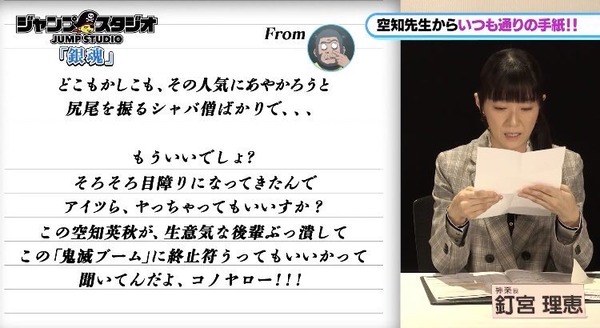 ジャンプスタジオ
JUMP STUDIO
「銀魂」
From
空知先生からいつも通りの手紙!!
どこもかしこも、その人気にあやかろうと
尻尾を振るシャバ僧ばかりで、、、
もういいでしょ?
そろそろ目障りになってきたんで
アイツら、ヤっちゃってもいいすか?
この空知英秋が、生意気な後輩ぶっ潰して
この「鬼滅ブーム」に終止符うってもいいかって
聞いてんだよ、コノヤロー!!!
神楽役
釘宮 理恵